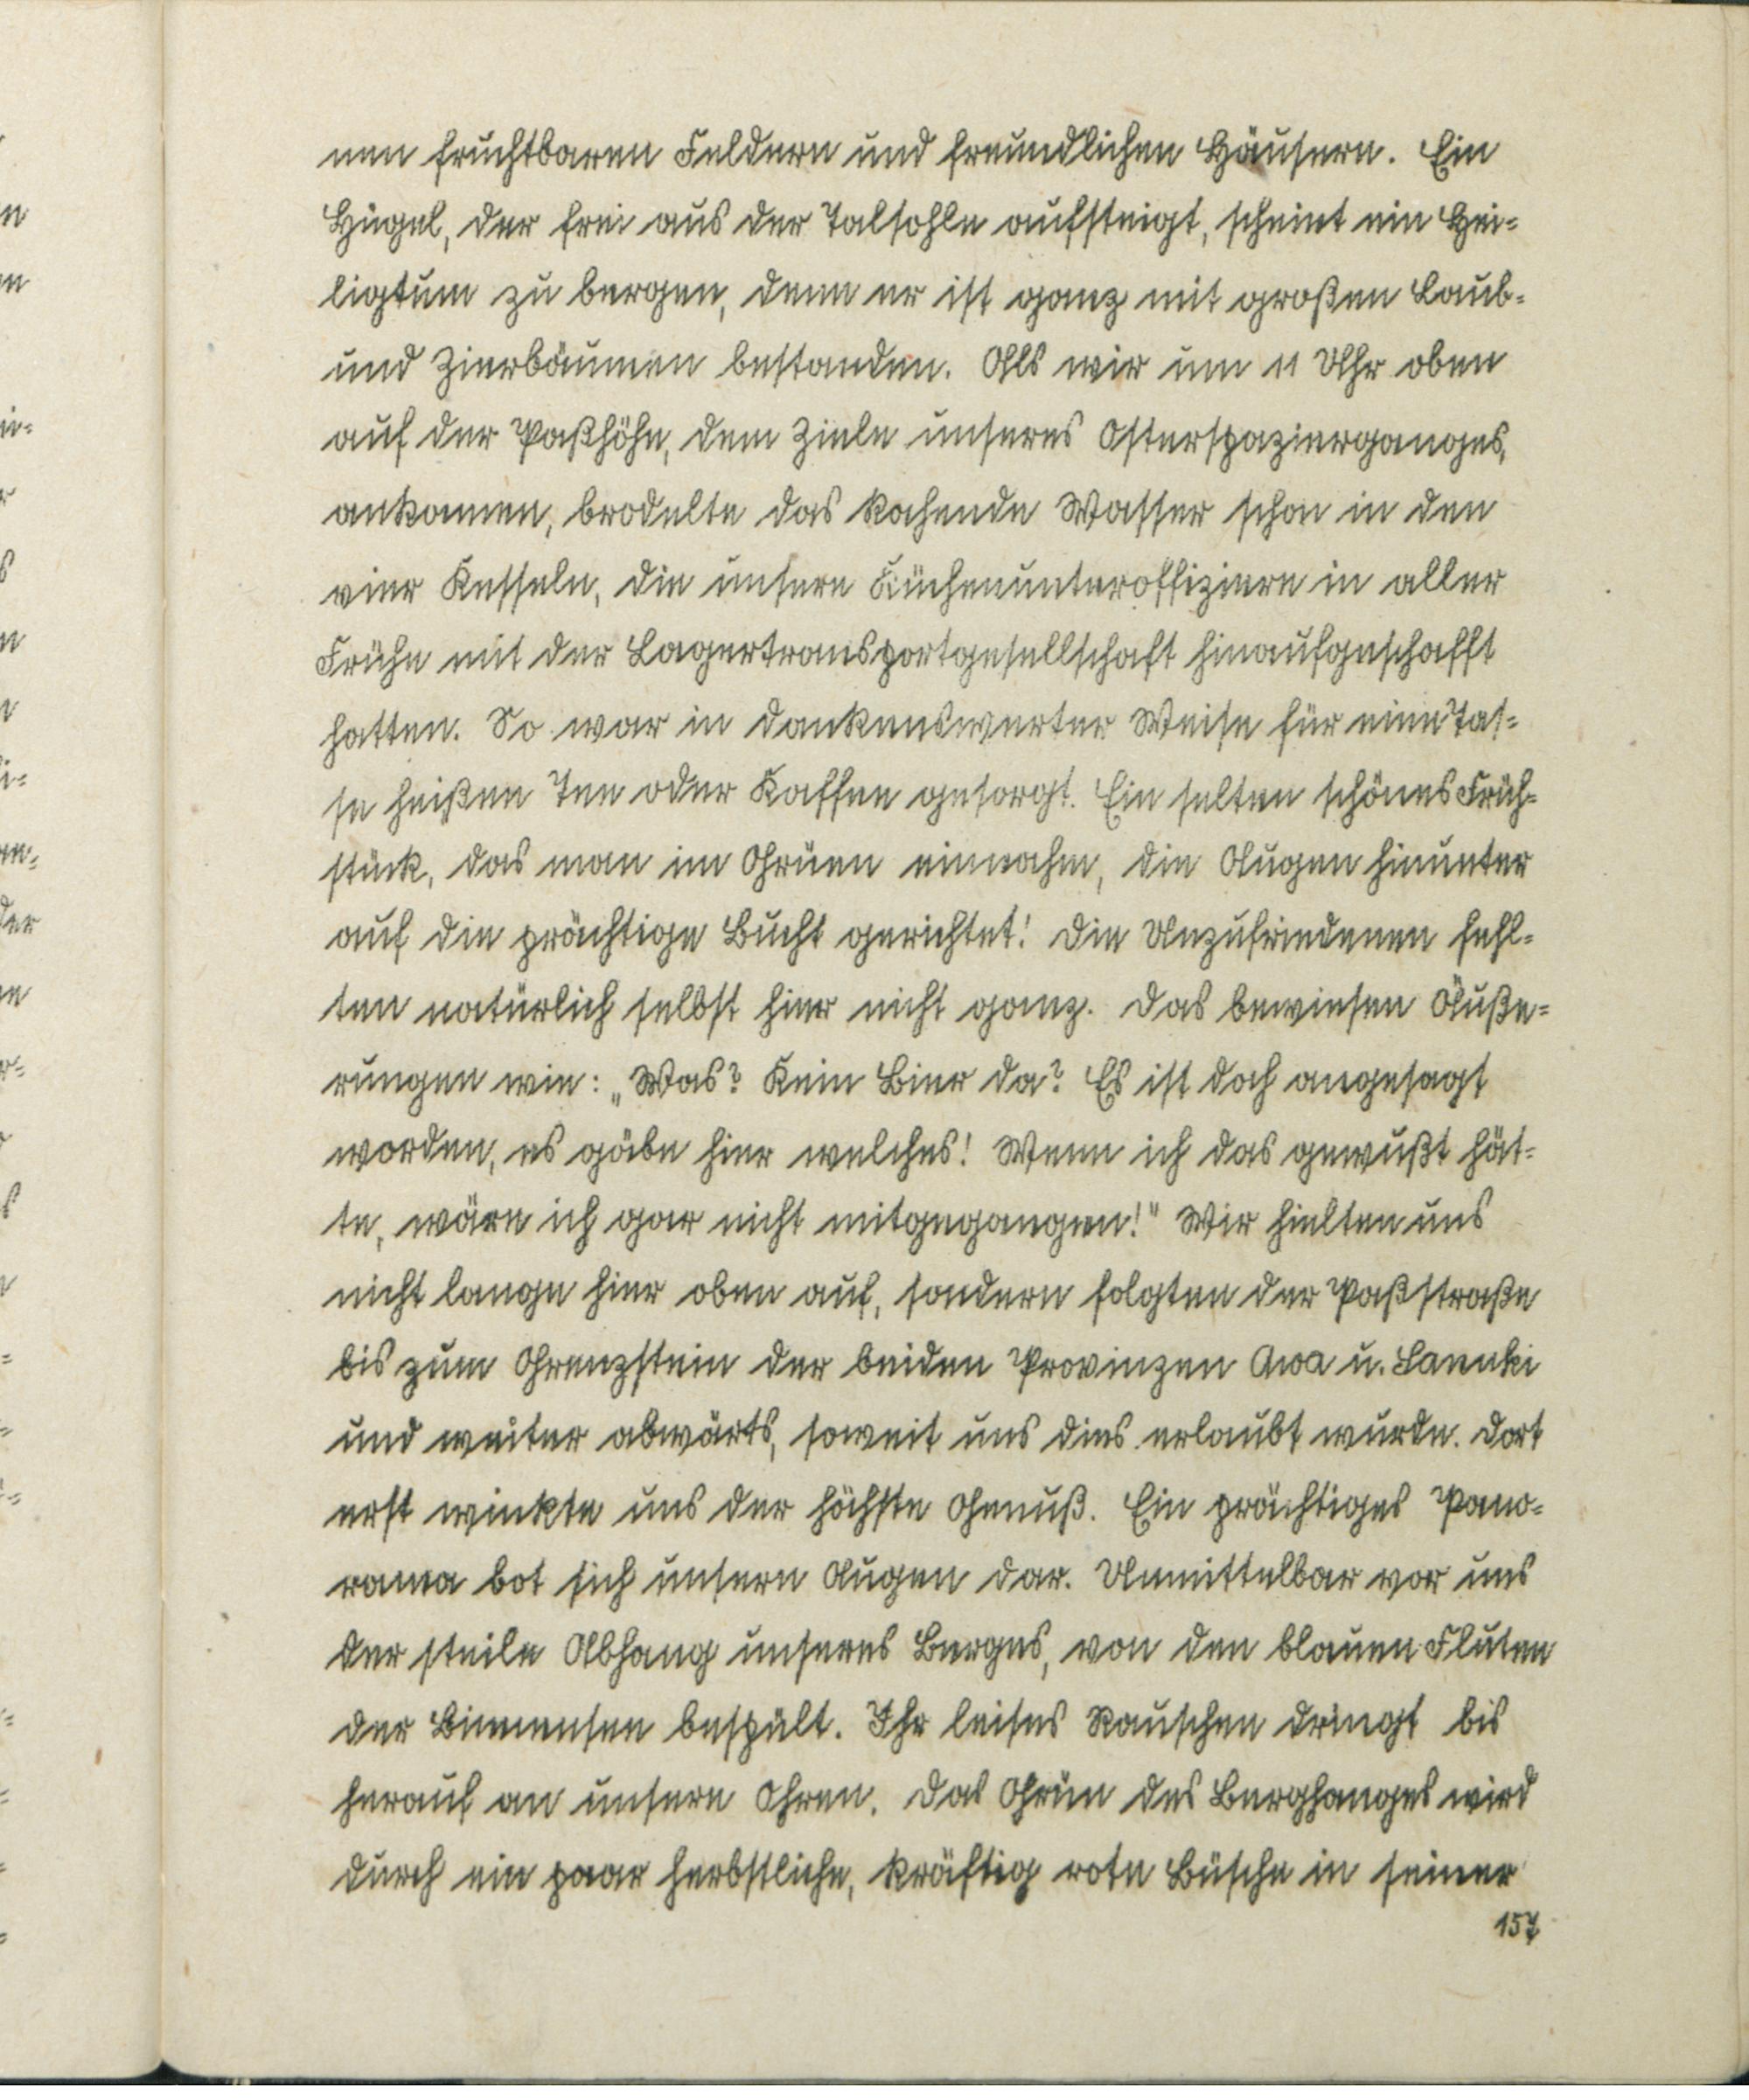 nen fruchtbaren Feldern und freundlichen Häusern. Ein
Hügel, der frei aus der Talsohle aufsteigt, scheint ein Hei-
ligtum zu bergen, denn er ist ganz mit großen Laub-
und Zierbäumen bestanden. Als wir um 11 Uhr oben
auf der Paßhöhe, dem Ziele unseres Osterspazierganges,
ankamen, brodelte das kochende Wasser schon in den
vier Kesseln, die unsere Küchenunteroffiziere in aller
Frühe mit der Lagertransportgesellschaft hinaufgeschafft
hatten. So war in dankenswerter Weise für eine Tas-
se heißen Tee oder Kaffee gesorgt. Ein selten schönes Früh-
stück, das man im Grünen einnahm, die Augen hinunter
auf die prächtige Bucht gerichtet! Die Unzufriedenen fehl-
ten natürlich selbst hier nicht ganz. Das bewiesen Äuße-
rungen wie: „Was? Kein Bier da? Es ist doch angesagt
worden, es gäbe hier welches! Wenn ich das gewußt hät-
te, wäre ich gar nicht mitgegangen!" Wir hielten uns
nicht lange hier oben auf, sondern folgten der Paßstraße
bis zum Grenzstein der beiden Provinzen Awa u. Sanuki
und weiter abwärts, soweit uns dies erlaubt wurde. Dort
erst winkte uns der höchste Genuß. Ein prächtiges Pano-
rama bot sich unsern Augen dar. Unmittelbar vor uns
der steile Abhang unseres Berges, von den blauen Fluten
der Binnensee bespült. Ihr leises Rauschen dringt bis
herauf an unsere Ohren. Das Grün des Berghanges wird
durch ein paar herbstliche, kräftig rote Büsche in seiner
157